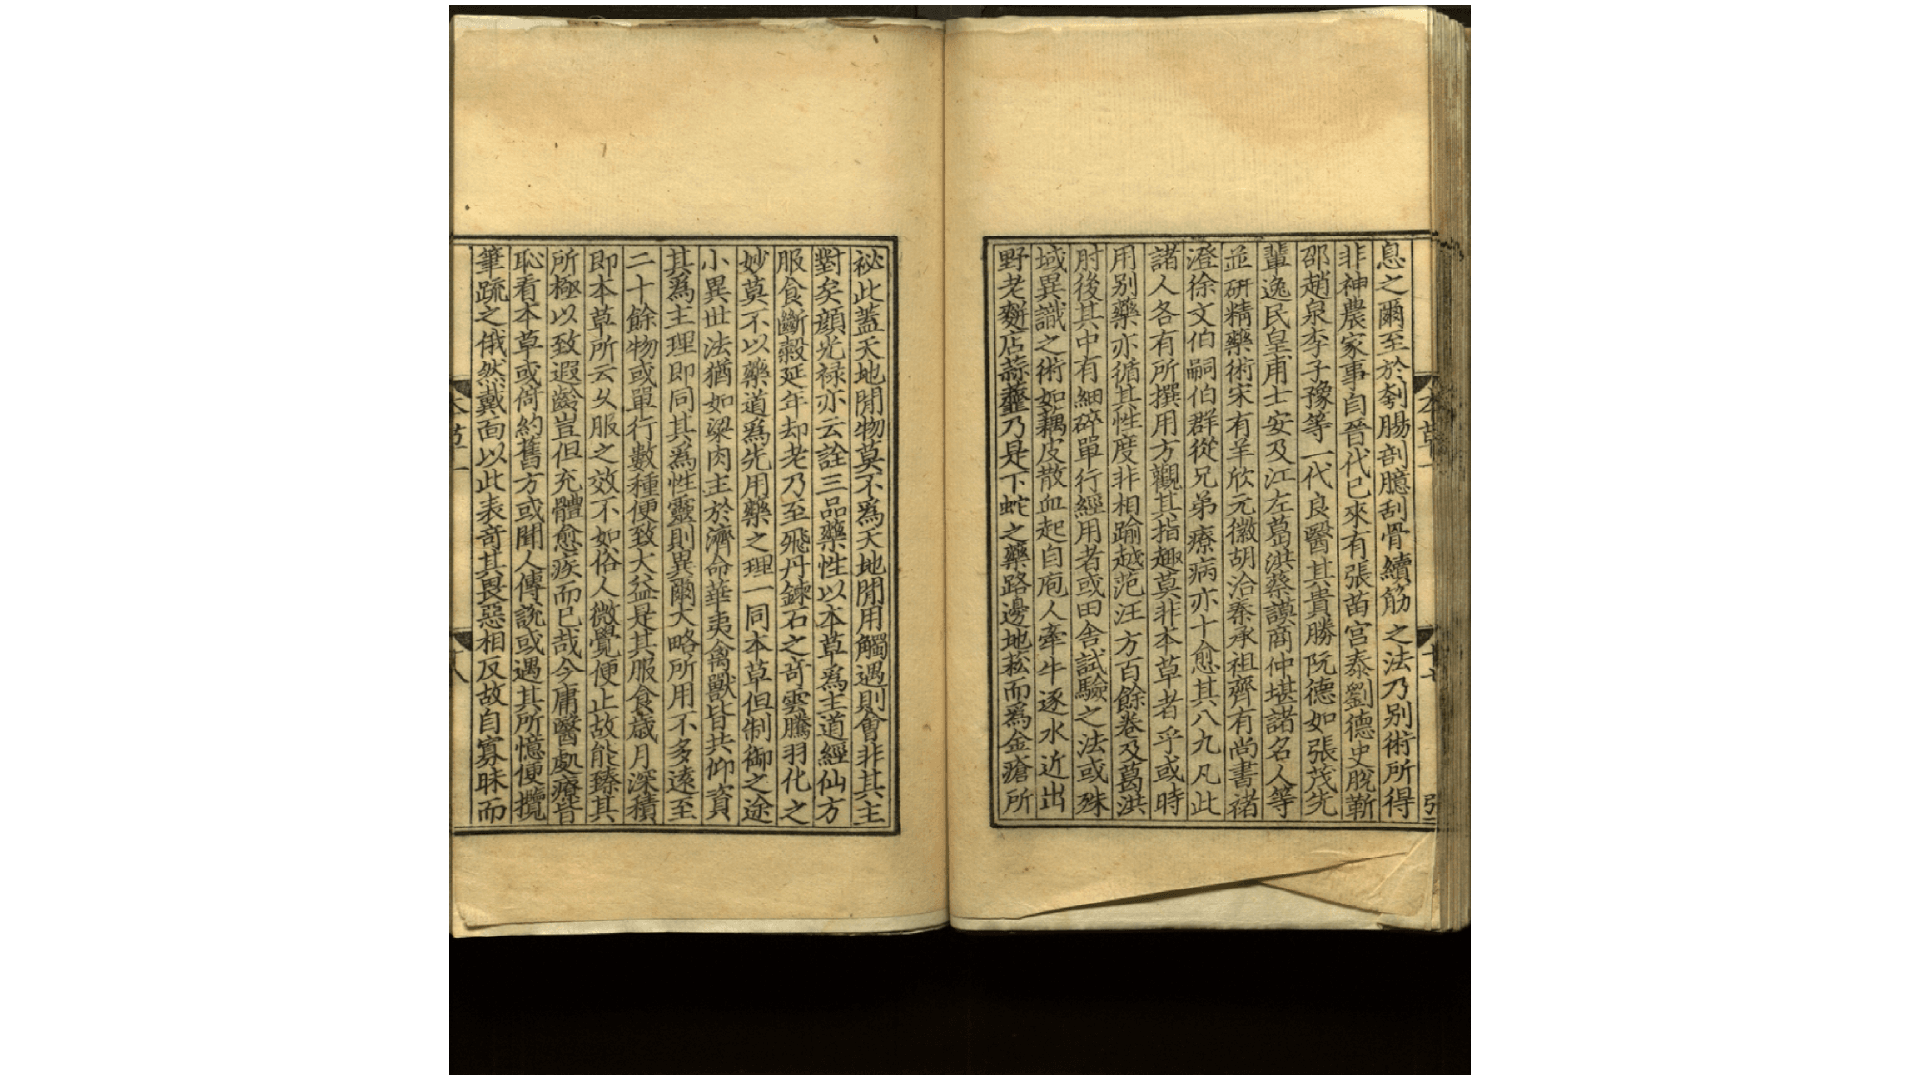 息之爾至於刳腸剖臆刮骨續筋之法乃別術所得
非神農家事自晉代已來有張苗宫泰劉德史脫靳
邵趙泉李子豫等一代良醫其貴勝阮德如張茂先
輩逸民皇甫士安及江左葛洪蔡謨商仲堪諸名人等
並研精藥術宋有羊欣元徽胡洽秦承祖齊有尚書褚
澄徐文伯嗣伯群從兄弟療病亦十愈其八九凡此
諸人各有所撰用方觀其指趣莫非本草者乎或時
用別藥亦循其性度非相踰越范汪方百餘卷及葛洪
肘後其中有細碎單行經用者或田舍試驗之法或殊
域異識之術如藕皮散血起自庖人牽牛逐水近出
野老麪店蒜虀乃是下蛇之藥路邊地菘而爲金瘡所
本草一
十七
秘此蓋天地間物莫不爲天地間用觸遇則會非其主
對矣顔光禄亦云詮三品藥性以本草爲主道經仙方
服食斷穀延年却老乃至飛丹鍊石之奇雲騰羽化之
妙莫不以藥道爲先用藥之理一同本草但制御之途
小異世法猶如梁肉主於濟命華夷禽獸皆共仰資
其爲主理即同其爲性靈則異爾大略所用不多遠至
二十餘物或單行數種便致大益是其服食歲月深積
即本草所云久服之效不如俗人微覺便止故能臻其
所極以致遐齡豈但充體愈疾而已哉今庸醫處療皆
恥看本草或倚約舊方或聞人傳說或遇其所憶便攬
筆疏之俄然戴面以此表奇其畏惡相反故自寡昧而